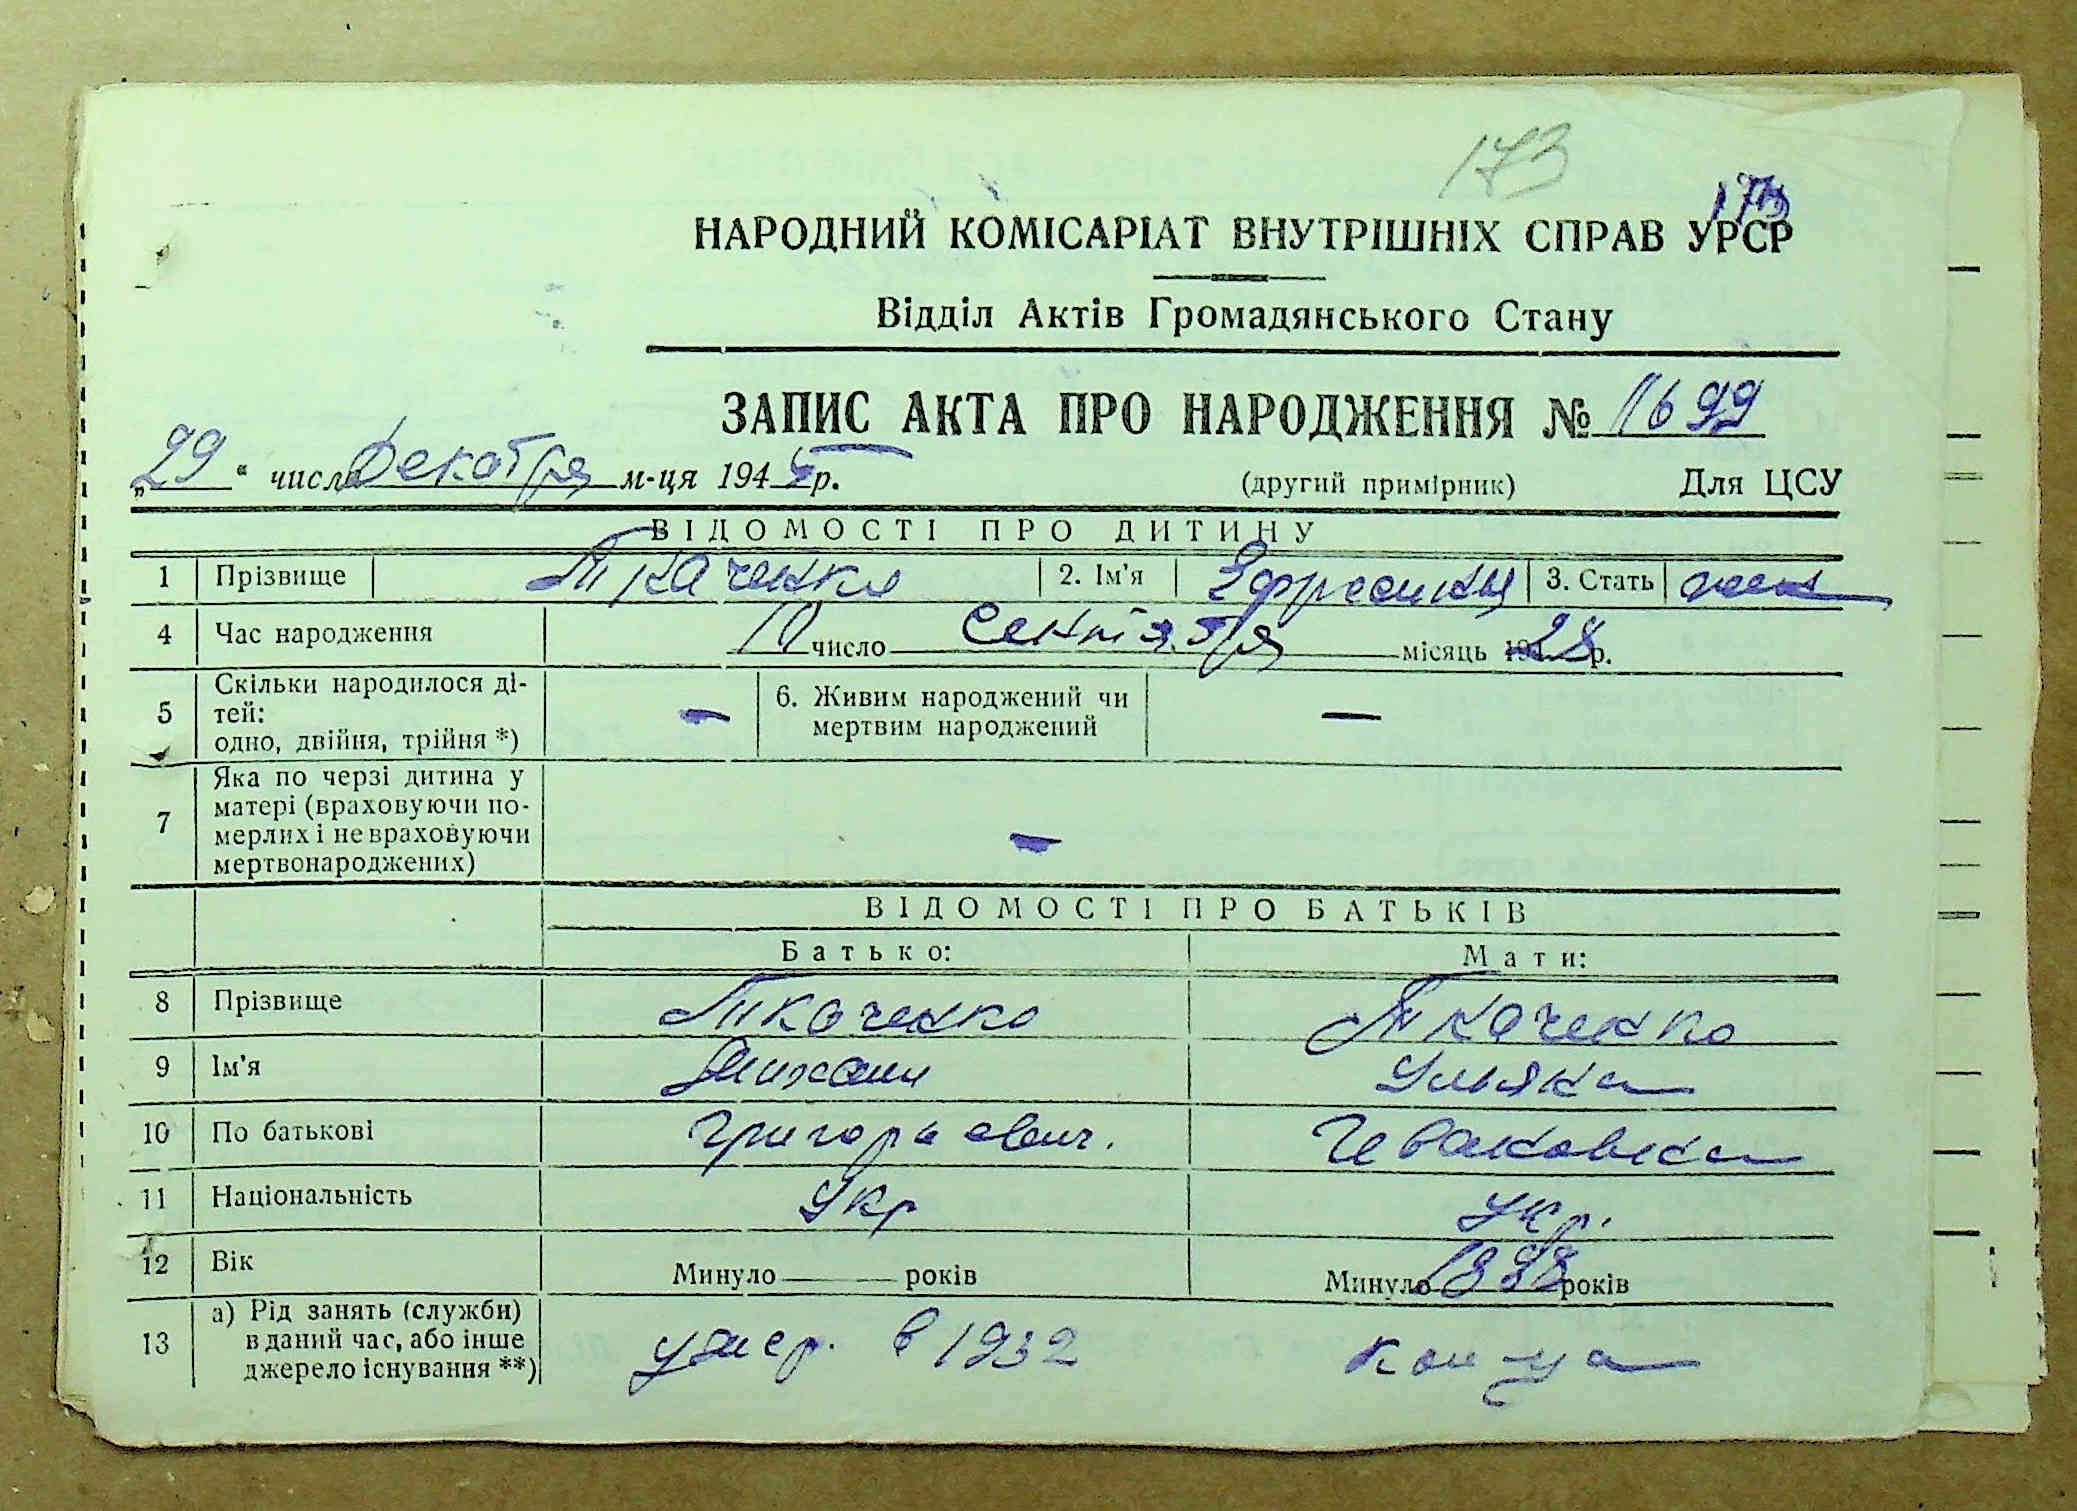 173
173
НАРОДНИЙ КОМІСАРІАТ ВНУТРІШНІХ СПРАВ УРСР
Відділ Актів Громадянського Стану
ЗАПИС АКТА ПРО НАРОДЖЕННЯ № 1699
„29“ числа Декабря м-ця 1945 р. (другий примірник) Для ЦСУ
ВІДОМОСТІ ПРО ДИТИНУ
1 Прізвище Ткаченко 2. Ім’я Ефросинья 3. Стать жен
4 Час народження 10 число Сентября місяць 1928 р.
5 Скільки народилося ді-
тей:
одно, двійня, трійня *) — 6. Живим народжений чи
мертвим народжений —
7 Яка по черзі дитина у
матері (враховуючи по-
мерлих і не враховуючи
мертвонароджених) —
ВІДОМОСТІ ПРО БАТЬКІВ
Батько: Мати:
8 Прізвище Ткаченко Ткаченко
9 Ім’я Михаил Ульяна
10 По батькові Григорьевич. Ивановна
11 Національність Укр Укр.
12 Вік Минуло років Минуло 1888 років
13 а) Рід занять (служби)
в даний час, або інше
джерело існування **) умер. в 1932 кол-ца